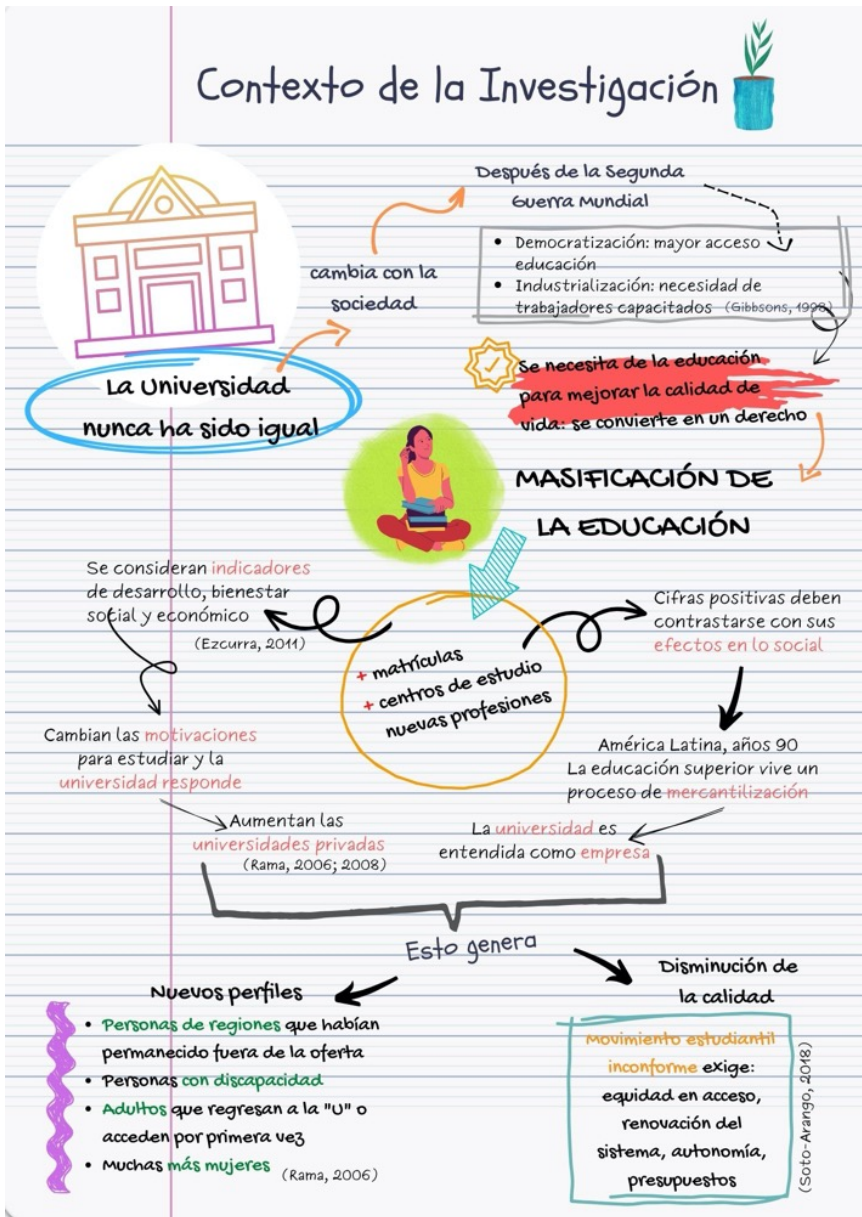 Contexto de la Investigación
La Universidad
nunca ha sido igual
cambia con la
sociedad
Después de la Segunda
Guerra Mundial
• Democratización: mayor acceso
educación
• Industrialización: necesidad de
trabajadores capacitados (Gibbsons, 1998)
Se necesita de la educación
para mejorar la calidad de
vida: se convierte en un derecho
MASIFICACIÓN DE
LA EDUCACIÓN
+ matrículas
+ centros de estudio
nuevas profesiones
Se consideran indicadores
de desarrollo, bienestar
social y económico
(Ezcurra, 2011)
Cambian las motivaciones
para estudiar y la
universidad responde
Aumentan las
universidades privadas
(Rama, 2006; 2008)
Cifras positivas deben
contrastarse con sus
efectos en lo social
América Latina, años 90
La educación superior vive un
proceso de mercantilización
La universidad es
entendida como empresa
Esto genera
Nuevos perfiles
• Personas de regiones que habían
permanecido fuera de la oferta
• Personas con discapacidad
• Adultos que regresan a la "U" o
acceden por primera vez
• Muchas más mujeres (Rama, 2006)
Disminución de
la calidad
Movimiento estudiantil
inconforme exige:
equidad en acceso,
renovación del
sistema, autonomía,
presupuestos
(Soto-Arango, 2018)